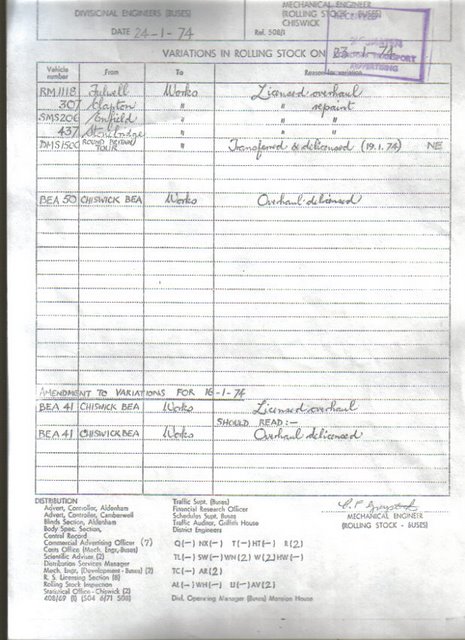 DIVISIONAL ENGINEERS (BUSES)
MECHANICAL ENGINEER
(ROLLING STOCK - BUSES)
CHISWICK
DATE 24-1-74
Ref. 508/1
VARIATIONS IN ROLLING STOCK ON 23.1.74
ADVERTISING
Vehicle number From To Reason for variation
RM1118 Fulwell Works Licensed overhaul
307 Clapton " " repaint
SMS206 Enfield " " "
437 Stonebridge " " "
DMS1500 ROUND BRITAIN TOUR " Transferred & delicensed (19.1.74) NE
BEA 50 CHISWICK BEA Works Overhaul delicensed
AMENDMENT TO VARIATIONS FOR 16-1-74
BEA 41 CHISWICK BEA Works Licensed overhaul
SHOULD READ:-
BEA 41 CHISWICK BEA Works Overhaul delicensed
DISTRIBUTION
Advert. Controller, Aldenham
Advert. Controller, Camberwell
Blinds Section, Aldenham
Body Spec. Section,
Central Record
Commercial Advertising Officer (7)
Costs Office (Mech. Engr.-Buses)
Scientific Adviser (2)
Distribution Services Manager
Mech. Engr. (Development - Buses) (2)
R. S. Licensing Section (8)
Rolling Stock Inspection
Statistical Office - Chiswick (2)
Traffic Supt. (Buses)
Financial Research Officer
Schedules Supt. Buses
Traffic Auditor, Griffith House
District Engineers
Q(-) NX(-) T(-) HT(-) R(2)
TL(-) SW(-) WN(2) W(2) HW(-)
TC(-) AR(2)
AL(-) WH(-) U(-) AV(2)
Divl. Operating Manager (Buses) Mansion House
MECHANICAL ENGINEER
(ROLLING STOCK - BUSES)